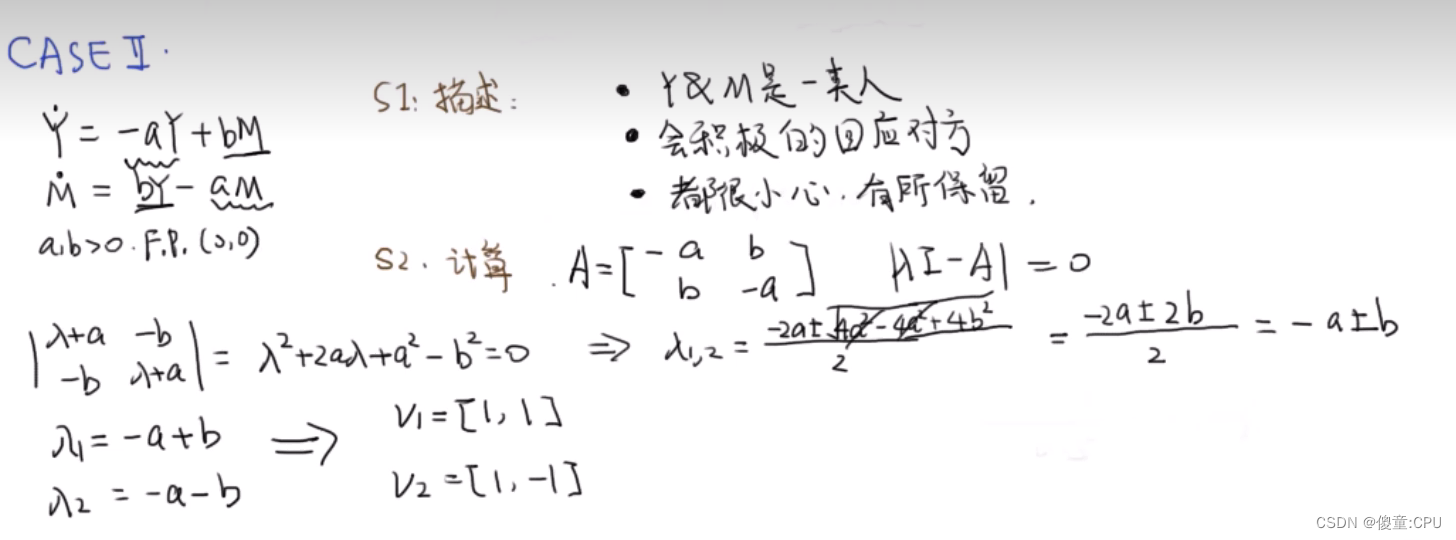 CASE II.
Ẏ = -aY + bM
Ṁ = bY - aM
a,b>0. F.P. (0,0)
S1: 描述:
• Y & M是一类人
• 会积极的回应对方
• 都很小心.有所保留.
S2. 计算. A = [-a b
b -a] |λI-A| = 0
|λ+a -b
-b λ+a| = λ²+2aλ+a²-b²=0 ⇒ λ1,2 = (-2a±√(4a²-4a²+4b²))/2 = (-2a±2b)/2 = -a±b
λ1 = -a+b ⇒ V1=[1,1]
λ2 = -a-b V2=[1,-1]
CSDN @傻童:CPU